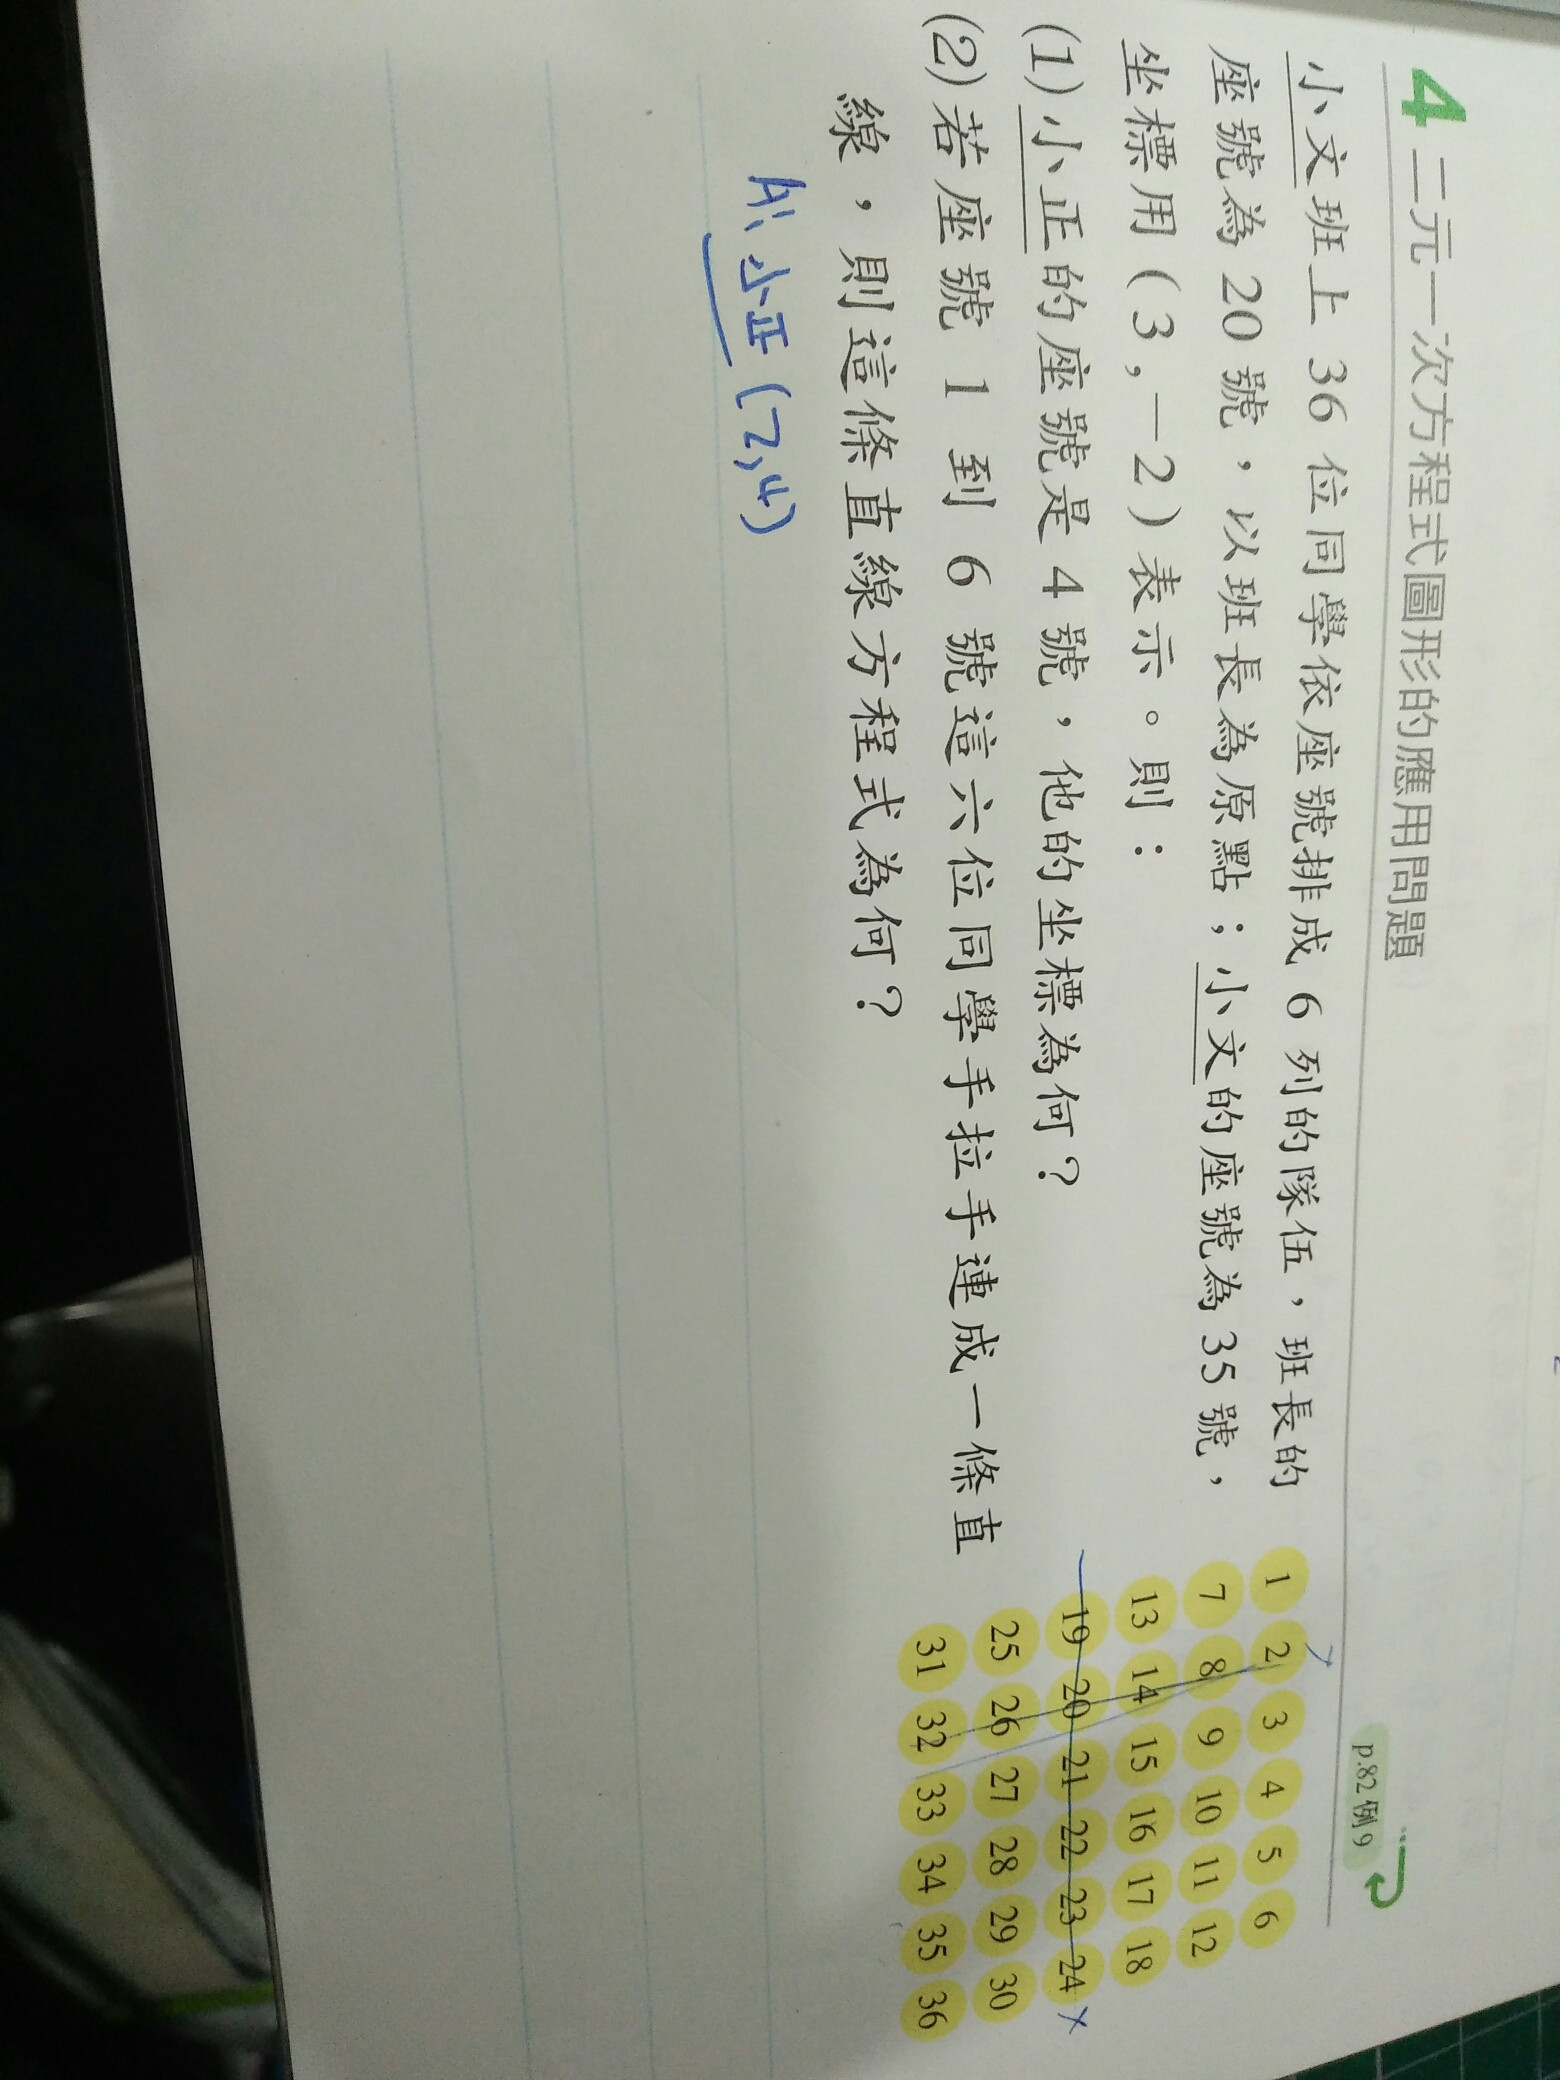 4 二元一次方程式圖形的應用問題
p.82 例 9
小文班上 36 位同學依座號排成 6 列的隊伍，班長的
座號為 20 號，以班長為原點；小文的座號為 35 號，
坐標用（3，－2）表示。則：
(1) 小正的座號是 4 號，他的坐標為何？
(2) 若座號 1 到 6 號這六位同學手拉手連成一條直
線，則這條直線方程式為何？
1 2 3 4 5 6
7 8 9 10 11 12
13 14 15 16 17 18
19 20 21 22 23 24 x
25 26 27 28 29 30
31 32 33 34 35 36
A: 小正 (2,4)